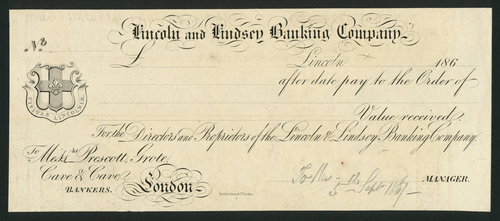 Lincoln and Lindsey Banking Company.
No.
£
Lincoln 186
after date pay to the Order of
CIVITAS LINCOLNIA
Value received
For the Directors and Proprietors of the Lincoln & Lindsey Banking Company.
To Messrs. Prescott, Grote,
Cave & Cave
BANKERS. London
MANAGER.
5th Sept 1867